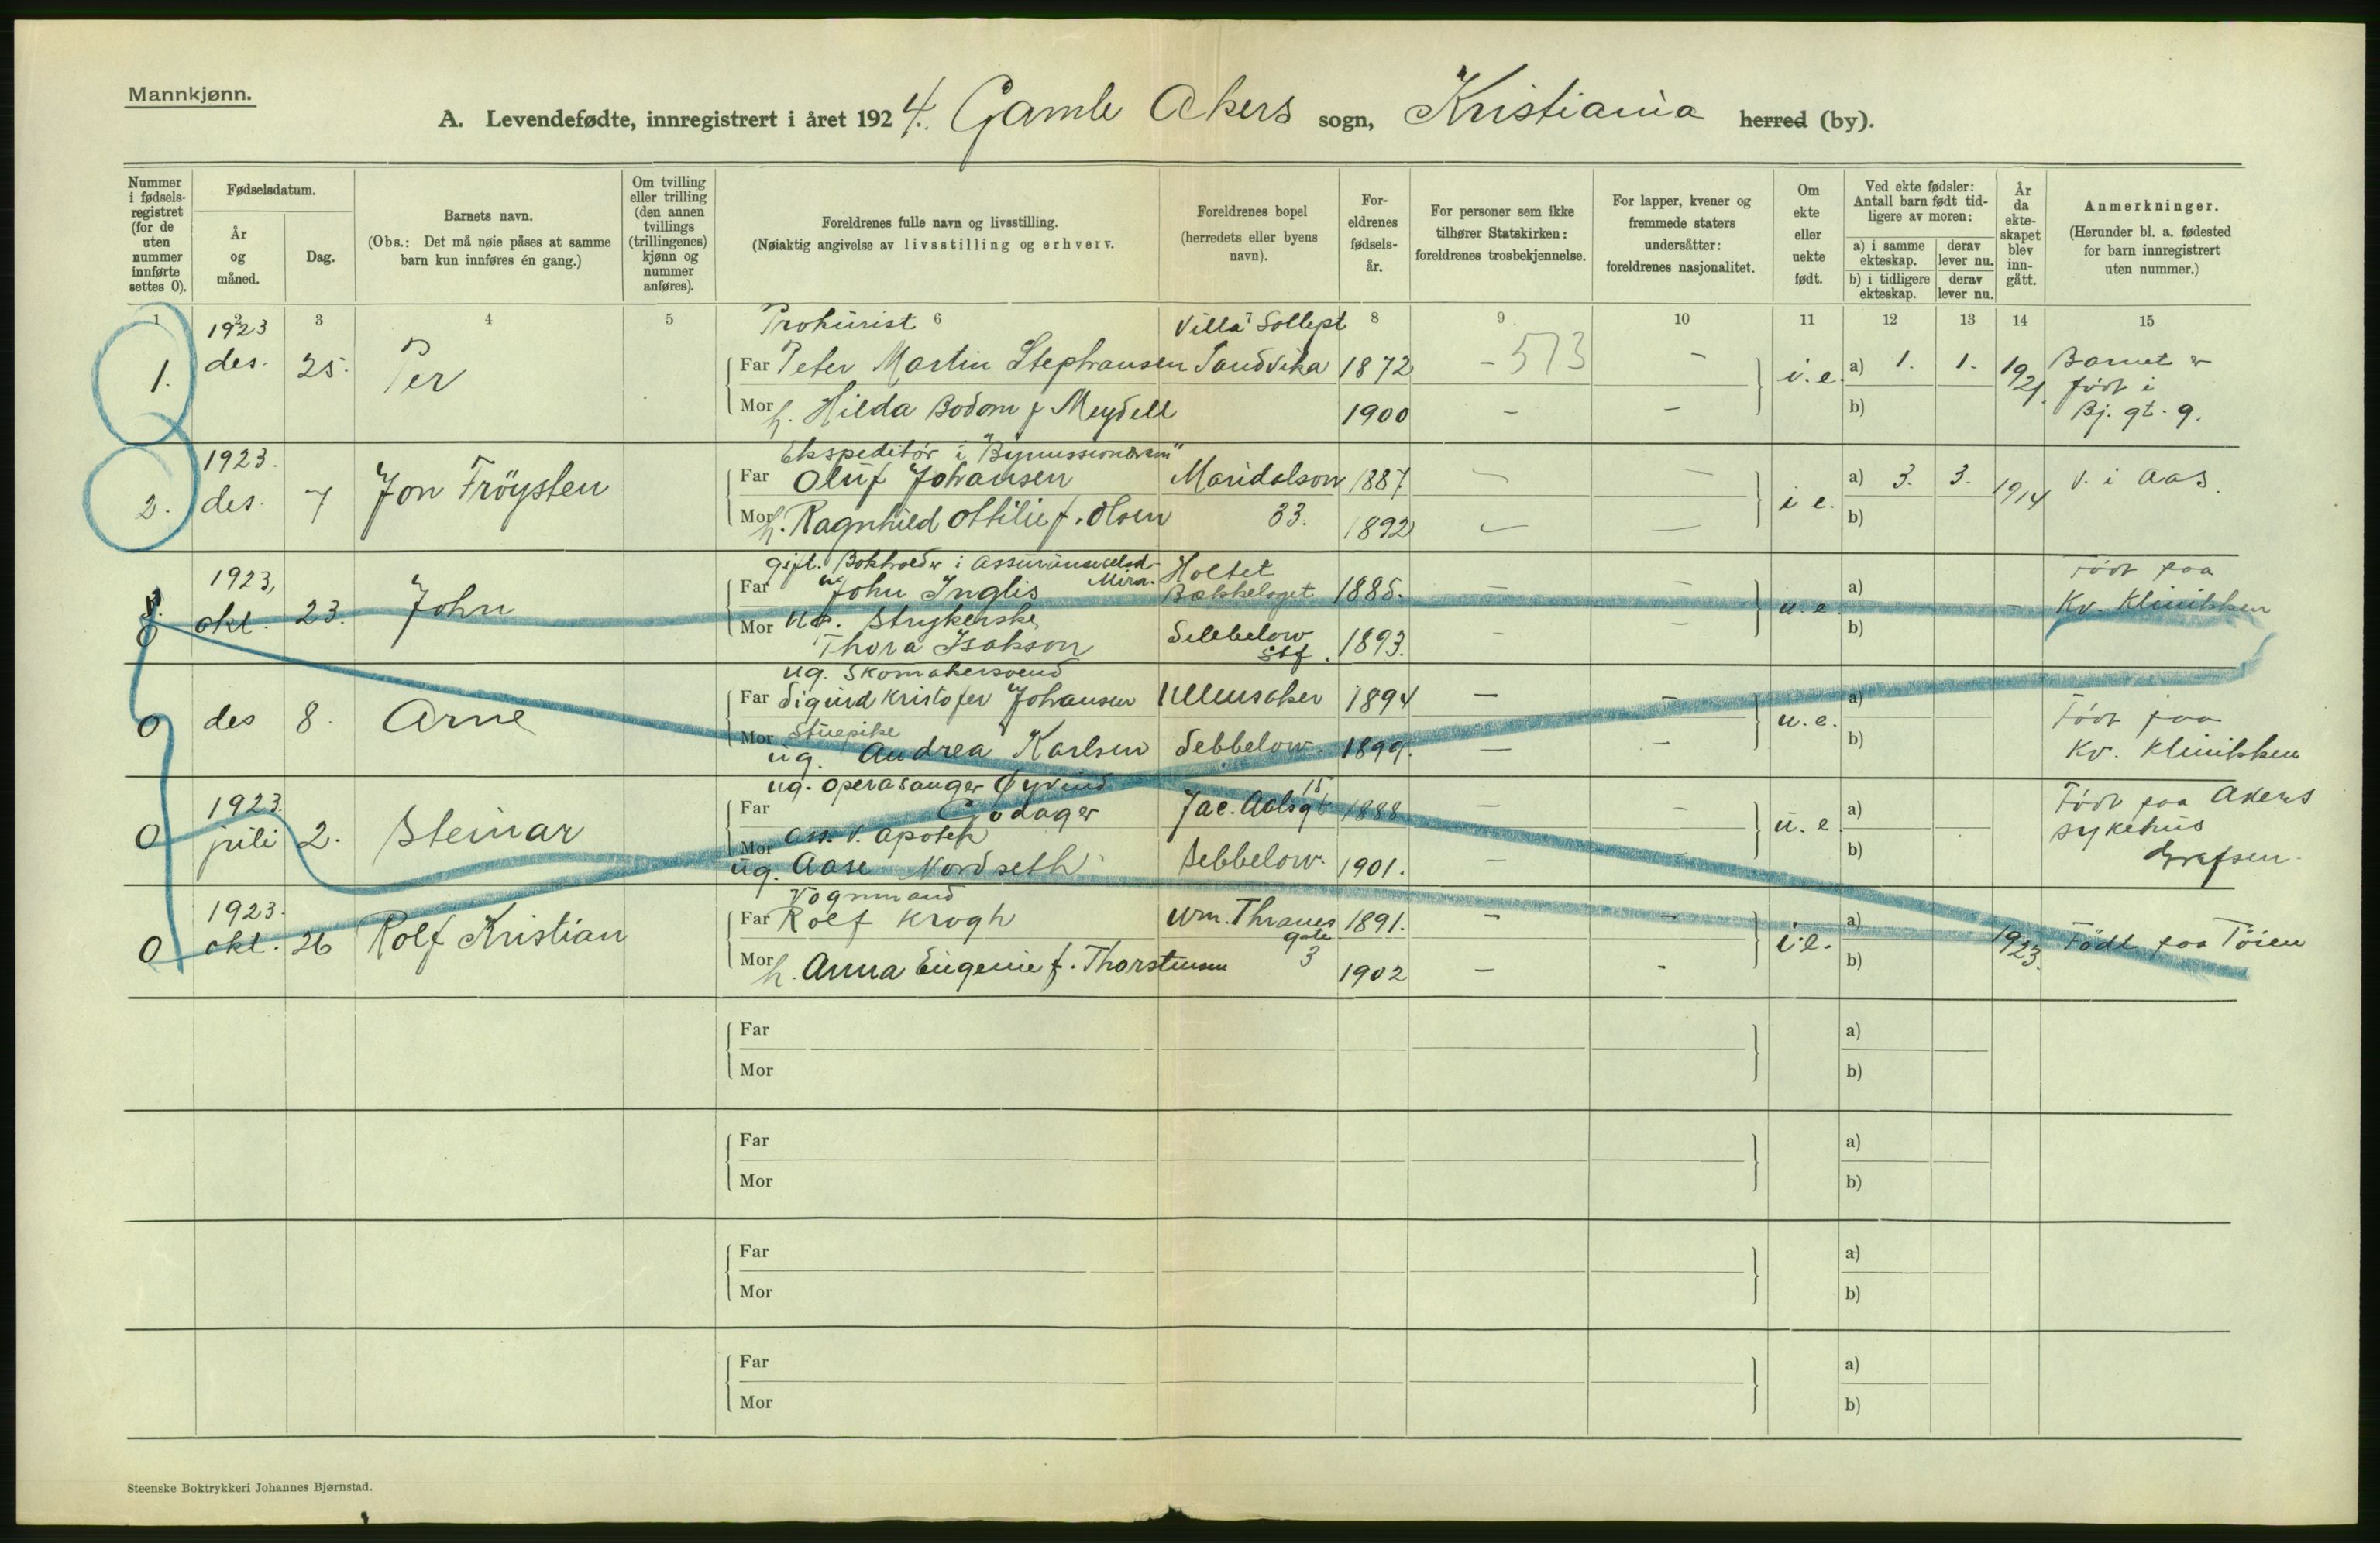 Mannkjønn.
A. Levendefødte, innregistrert i året 1924. Gamle Akers sogn, Kristiania herred (by).
Nummer i fødsels-registret (for de uten nummer innførte settes 0).
Fødselsdatum.
År og måned.
Dag.
Barnets navn.
(Obs.: Det må nøie påses at samme barn kun innføres én gang.)
Om tvilling eller trilling (den annen tvillings (trillingenes) kjønn og nummer anføres).
Foreldrenes fulle navn og livsstilling.
(Nøiaktig angivelse av livsstilling og erhverv.
Foreldrenes bopel (herredets eller byens navn).
For-eldrenes fødsels-år.
For personer som ikke tilhører Statskirken: foreldrenes trosbekjennelse.
For lapper, kvener og fremmede staters undersåtter: foreldrenes nasjonalitet.
Om ekte eller uekte født.
Ved ekte fødsler: Antall barn født tid-ligere av moren:
a) i samme ekteskap.
derav lever nu.
b) i tidligere ekteskap.
derav lever nu.
År da ekte-skapet blev inn-gått.
Anmerkninger.
(Herunder bl. a. fødested for barn innregistrert uten nummer.)
1 2 3 4 5 6 8 9 10 11 12 13 14 15
1. 1923 des. 25. Per
Prokurist
Far Peter Martin Stephansen Sandvika 1872 - 573 -
Villa Sollept
Mor h. Hilda Bodom f Meydell 1900 - -
i. e. a) 1. 1. 1921. b)
Barnet er født i Bj. gt. 9.
2. 1923. des. 7 Jon Fröysten
Ekspeditør i "Bymissionæren"
Far Oluf Johansen Maridalson 1887 - -
Mor h. Ragnhild Ottilie f. Olsen 33. 1892 - -
i e. a) 3. 3. 1914 b)
V. i Aas.
0 1923, okt. 23. John
gift. Bokholder i Assuranseselsk. Mira.
Far John Inglis Holtet Bækkelaget 1885. - -
Mor ug. Strykerske
Thora Isakson Sebbelow Stf. 1893. - -
u. e. a) b) -
Født paa Kv. Klinikken
0 des 8. Arne
ug. Skomakersvend
Far Sigurd Kristofer Johansen Ullensaker 1894 - -
Mor Stuepike
ug. Andrea Karlsen Sebbelow. 1899. - -
u. e. a) b)
Født paa Kv. Klinikken
0 1923. juli 2. Steinar
ug. Operasanger Øyvind
Far Godager Jac. Aalsgt. 15 1888 - -
Mor Ass. v. Apotek
ug. Aase Nordseth Sebbelow. 1901. - -
u. e a) b)
Født paa Akers sykehus Grefsen.
0 1923. okt. 26 Rolf Kristian
Vognmand
Far Rolf Krogh Wm. Thranes gate 3 1891. - -
Mor h. Anna Eugenie f. Thorstensen 1902 - -
i e. a) b) 1923.
Født paa Töien
Far a)
Mor b)
Far a)
Mor b)
Far a)
Mor b)
Far a)
Mor b)
Steenske Boktrykkeri Johannes Bjørnstad.